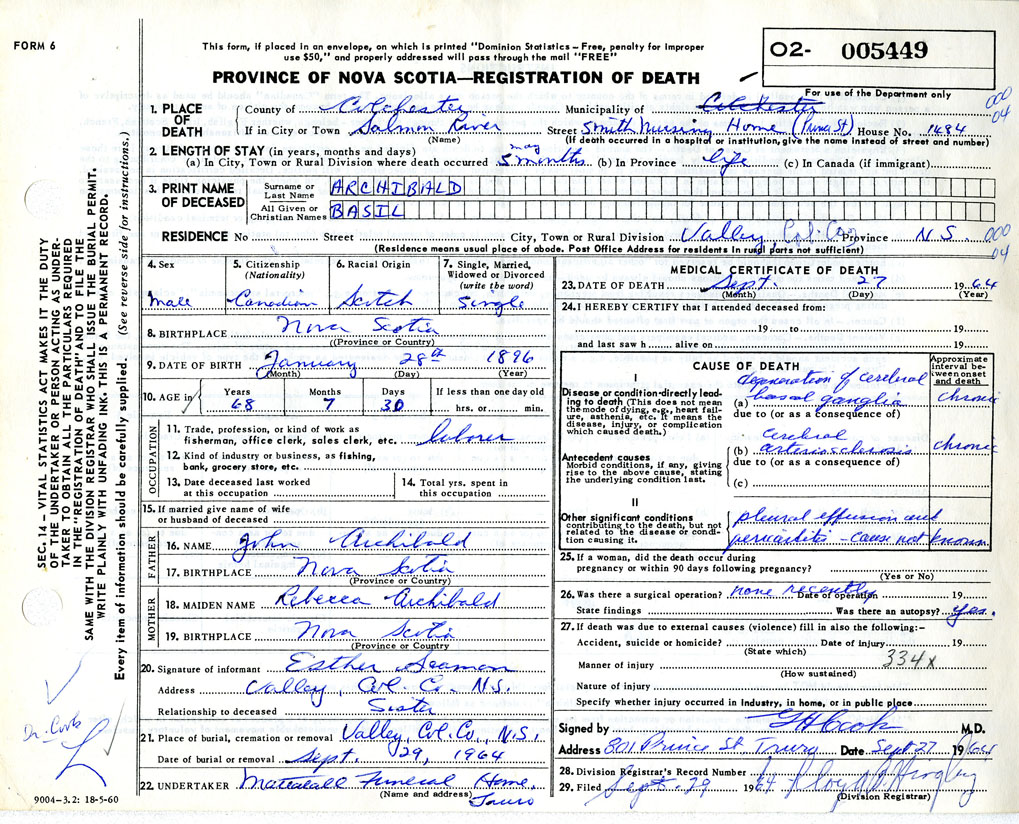 FORM 6
This form, if placed in an envelope, on which is printed "Dominion Statistics – Free, penalty for improper
use $50," and properly addressed will pass through the mail "FREE"
PROVINCE OF NOVA SCOTIA—REGISTRATION OF DEATH
O2- 005449
For use of the Department only
000
04
SEC. 14 – VITAL STATISTICS ACT MAKES IT THE DUTY
OF THE UNDERTAKER OR PERSON ACTING AS UNDER-
TAKER TO OBTAIN ALL THE PARTICULARS REQUIRED
IN THE "REGISTRATION OF DEATH" AND TO FILE THE
SAME WITH THE DIVISION REGISTRAR WHO SHALL ISSUE THE BURIAL PERMIT.
WRITE PLAINLY WITH UNFADING INK. THIS IS A PERMANENT RECORD.
Every item of information should be carefully supplied. (See reverse side for instructions.)
1. PLACE OF DEATH
County of Colchester Municipality of Colchester
If in City or Town Salmon River Street Smith Nursing Home (Prince St) House No. 1484
(Name) (If death occurred in a hospital or institution, give the name instead of street and number)
2. LENGTH OF STAY (in years, months and days)
may
(a) In City, Town or Rural Division where death occurred 5 months (b) In Province life (c) In Canada (if immigrant)
3. PRINT NAME OF DECEASED
Surname or Last Name ARCHIBALD
All Given or Christian Names BASIL
RESIDENCE No Street City, Town or Rural Division Valley Col. Co. Province N S 000
04
(Residence means usual place of abode. Post Office Address for residents in rural parts not sufficient)
4. Sex
male
5. Citizenship
(Nationality)
Canadian
6. Racial Origin
Scotch
7. Single, Married,
Widowed or Divorced
(write the word)
Single
8. BIRTHPLACE Nova Scotia
(Province or Country)
9. DATE OF BIRTH January 28th 1896
(Month) (Day) (Year)
10. AGE in Years Months Days If less than one day old
68 7 30 hrs. or min.
OCCUPATION
11. Trade, profession, or kind of work as
fisherman, office clerk, sales clerk, etc. laborer
12. Kind of industry or business, as fishing,
bank, grocery store, etc.
13. Date deceased last worked
at this occupation
14. Total yrs. spent in
this occupation
15. If married give name of wife
or husband of deceased
FATHER
16. NAME John Archibald
17. BIRTHPLACE Nova Scotia
(Province or Country)
MOTHER
18. MAIDEN NAME Rebecca Archibald
19. BIRTHPLACE Nova Scotia
(Province or Country)
20. Signature of informant Esther Seaman
Address Valley, Col. Co. N.S.
Relationship to deceased Sister
21. Place of burial, cremation or removal Valley, Col. Co., N.S.
Date of burial or removal Sept. 29, 1964
22. UNDERTAKER Mattatall Funeral Home,
(Name and address) Truro
Dr. Cook
9004–3.2: 18-5-60
MEDICAL CERTIFICATE OF DEATH
23. DATE OF DEATH Sept. 27 1964
(Month) (Day) (Year)
24. I HEREBY CERTIFY that I attended deceased from:
19 to 19
and last saw h alive on 19
CAUSE OF DEATH
Approximate
interval be-
tween onset
and death
I
Disease or condition directly lead-
ing to death (This does not mean
the mode of dying, e.g., heart fail-
ure, asthenia, etc. It means the
disease, injury, or complication
which caused death.)
degeneration of cerebral
(a) basal ganglia chronic
due to (or as a consequence of)
Antecedent causes
Morbid conditions, if any, giving
rise to the above cause, stating
the underlying condition last.
cerebral
(b) arteriosclerosis chronic
due to (or as a consequence of)
(c)
II
Other significant conditions
contributing to the death, but not
related to the disease or condi-
tion causing it.
pleural effusion and
pericarditis – cause not known
25. If a woman, did the death occur during
pregnancy or within 90 days following pregnancy?
(Yes or No)
26. Was there a surgical operation? none recently Date of operation 19
State findings Was there an autopsy? yes.
27. If death was due to external causes (violence) fill in also the following:–
Accident, suicide or homicide? Date of injury 19
(State which)
334x
Manner of injury
(How sustained)
Nature of injury
Specify whether injury occurred in industry, in home, or in public place
Signed by G H Cook M.D.
Address 801 Prince St Truro Date Sept 27 1964
28. Division Registrar's Record Number
29. Filed Sept. 29 1964
(Division Registrar)